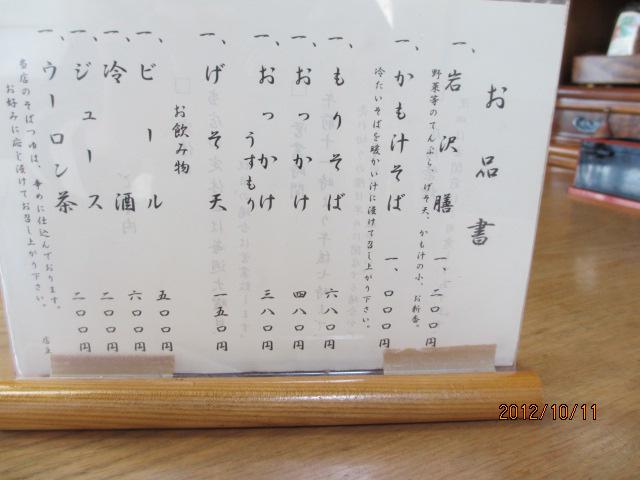 お品書
一、岩沢膳 一、二〇〇円
野菜等のてんぷら、げそ天、かも汁の小、お新香。
一、かも汁そば 一、〇〇〇円
冷たいそばを暖かい汁に漬けて召し上がり下さい。
一、もりそば 六八〇円
一、おっかけ 四八〇円
一、おっかけ 三八〇円
うすもり
一、げそ天 一五〇円
お飲み物
一、ビール 五〇〇円
一、冷酒 六〇〇円
一、ジュース 二〇〇円
一、ウーロン茶 二〇〇円
当店のそばつゆは、辛めに仕込んでおります。
お好みに応じ漬けてお召し上がり下さい。
店主
2012/10/11